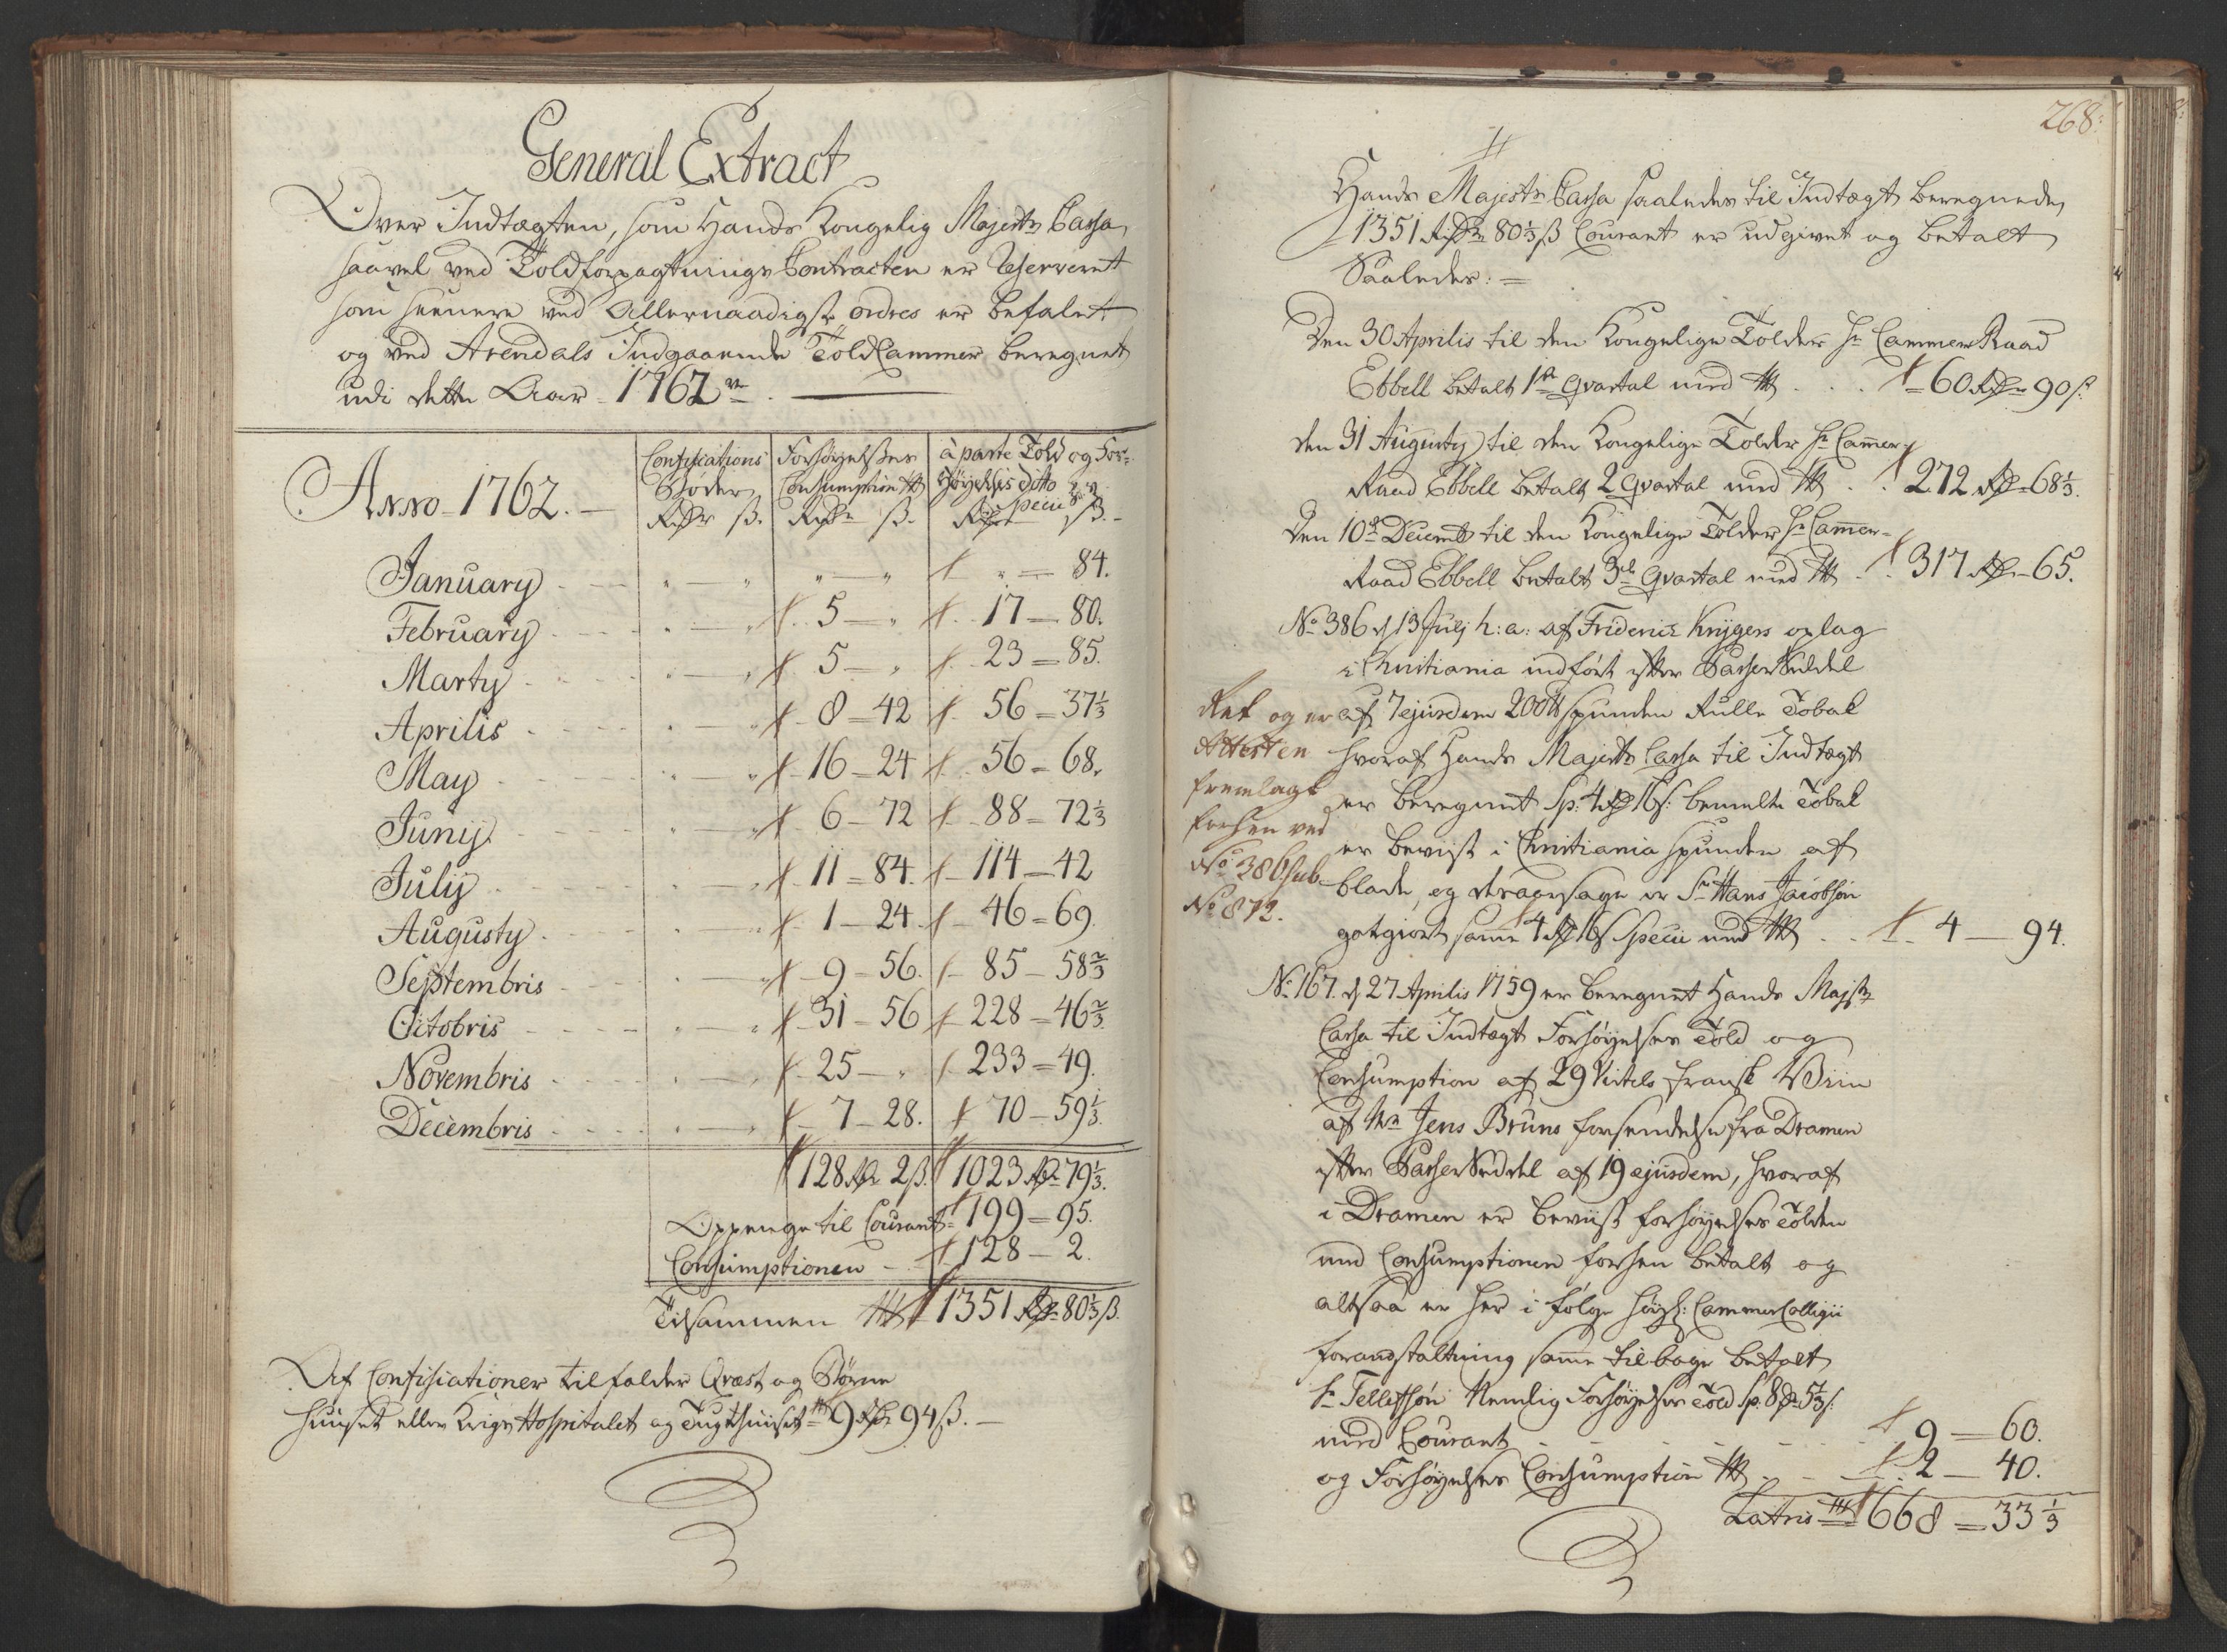 General Extract
Over Indtægten, som Hands Kongelig Majestts Cassa,
saavel ved Toldforpagtnings Contracten er Reserveret
som seenere ved Allernaadigste ordres er befalet
og ved Arendals Indgaaende ToldCammer beregnet
udi dette Aar 1762
Anno 1762.
Confiscations
Bøder
Rdr ß.
Forhøyelsses
Consumption
Rdr ß.
à parte Told og For-
høyelsis ditto
Specie
Rdr ß.
January " — " " — " " = 84.
February " — " 5 — " 17 — 80.
Marty " — " 5 — " 23 = 85.
Aprilis " — " 8 = 42 56 = 37 1/3
May " — " 16 = 24 56 = 68.
Junij " — " 6 — 72 88 = 72 1/3
Julij " — " 11 = 84. 114 — 42
Augusty " — " 1 — 24. 46 = 69.
Septembris " — " 9 = 56. 85 — 58 2/3
Octobris " — " 31 = 56 228 = 46 2/3
Novembris " — " 25 — " 233 = 49.
Decembris " — " 7 — 28. 70 — 59 1/3.
128 Rdr 2 ß. 1023 Rdr 79 1/3.
Oppenge til Courant 199 = 95.
Consumptionen 128 — 2.
Tilsammen 1351 Rdr 80 1/3 ß.
Af Confisicationer tilfalder Qvæst og Børne
huuset eller Krigs Hospitalet og Tugthuuset 9 Rdr 94 ß.
268.
Hands Majestts Cassa saaledes til Indtægt beregnede
1351 Rdr 80 1/3 ß Courant er udgivet og betalt
Saaledes:
Den 30 Aprilis til den Kongelige Tolder Hr CammerRaad
Ebbell betalt 1ste Qvartal med 60 Rdr 90 ß.
den 31 Augusty til den Kongelige Tolder Hr Cammer
Raad Ebbell betalt 2 Qvartal med 272 Rdr 68 1/3.
Den 10de Decembr til den Kongelige Tolder Hr Cammer-
Raad Ebbell betalt 3de Qvartal med 317 Rdr 65.
No 386 d 13 Julj h: a: af Friderich Krygers oplag
i Christiania indført efter Passer Seddel
af 7 ejusdem 200 ℔ spunden Rulle Tobak
hvoraf Hands Majestts Cassa til Indtægt
er beregnet Sp: 4 Rdr 16 ß: bemelte Tobak
er beviist i Christiania spunden af
blade, og deraarsage er Sr Hans Jacobsøn
godgiort samme 4 Rdr 16 ß Specie med 4 — 94.
Ret og er
Attesten
fremlagt
forhen ved
No 386 sub
No 872.
No 167. d 27 Aprilis 1759 er beregnet Hands Majsts
Cassa til Indtægt Forhøyelses Told og
Consumption af 29 Virtels fransk Viin
af Mr Jens Bruns forsendelse fra Dramen
efter Passer Seddel af 19 ejusdem, hvoraf
i Dramen er beviist forhøyelses Tolden
med Consumptionen forhen betalt og
altsaa er her i følge høyl: Cammer Collegii
foranstaltning samme tilbage betalt
Sr Tellefsøn Nemlig Forhøyelses Told Sp: 8 Rdr 5 1/3 ß:
med Courant 9 — 60.
og Forhøyelses Consumption 2 — 40.
Latris 668 = 33 1/3